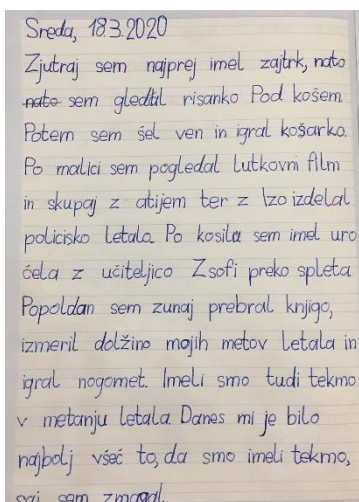 Sreda, 18.3.2020
Zjutraj sem najprej imel zajtrk, nato
nato sem gledtil risanko Pod košem
Potem sem šel ven in igral košarko.
Po malici sem pogledal lutkovni film
in skupaj z atijem ter z Izo izdelal
policisko letalo. Po kosilu sem imel uro
čela z učiteljico Zsofi preko spleta
Popoldan sem zunaj prebral knjigo,
izmeril dolžino mojih metov letala in
igral nogomet. Imeli smo tudi tekmo
v metanju letala. Danes mi je bilo
najbolj všeč to, da smo imeli tekmo,
saj sem zmagal.